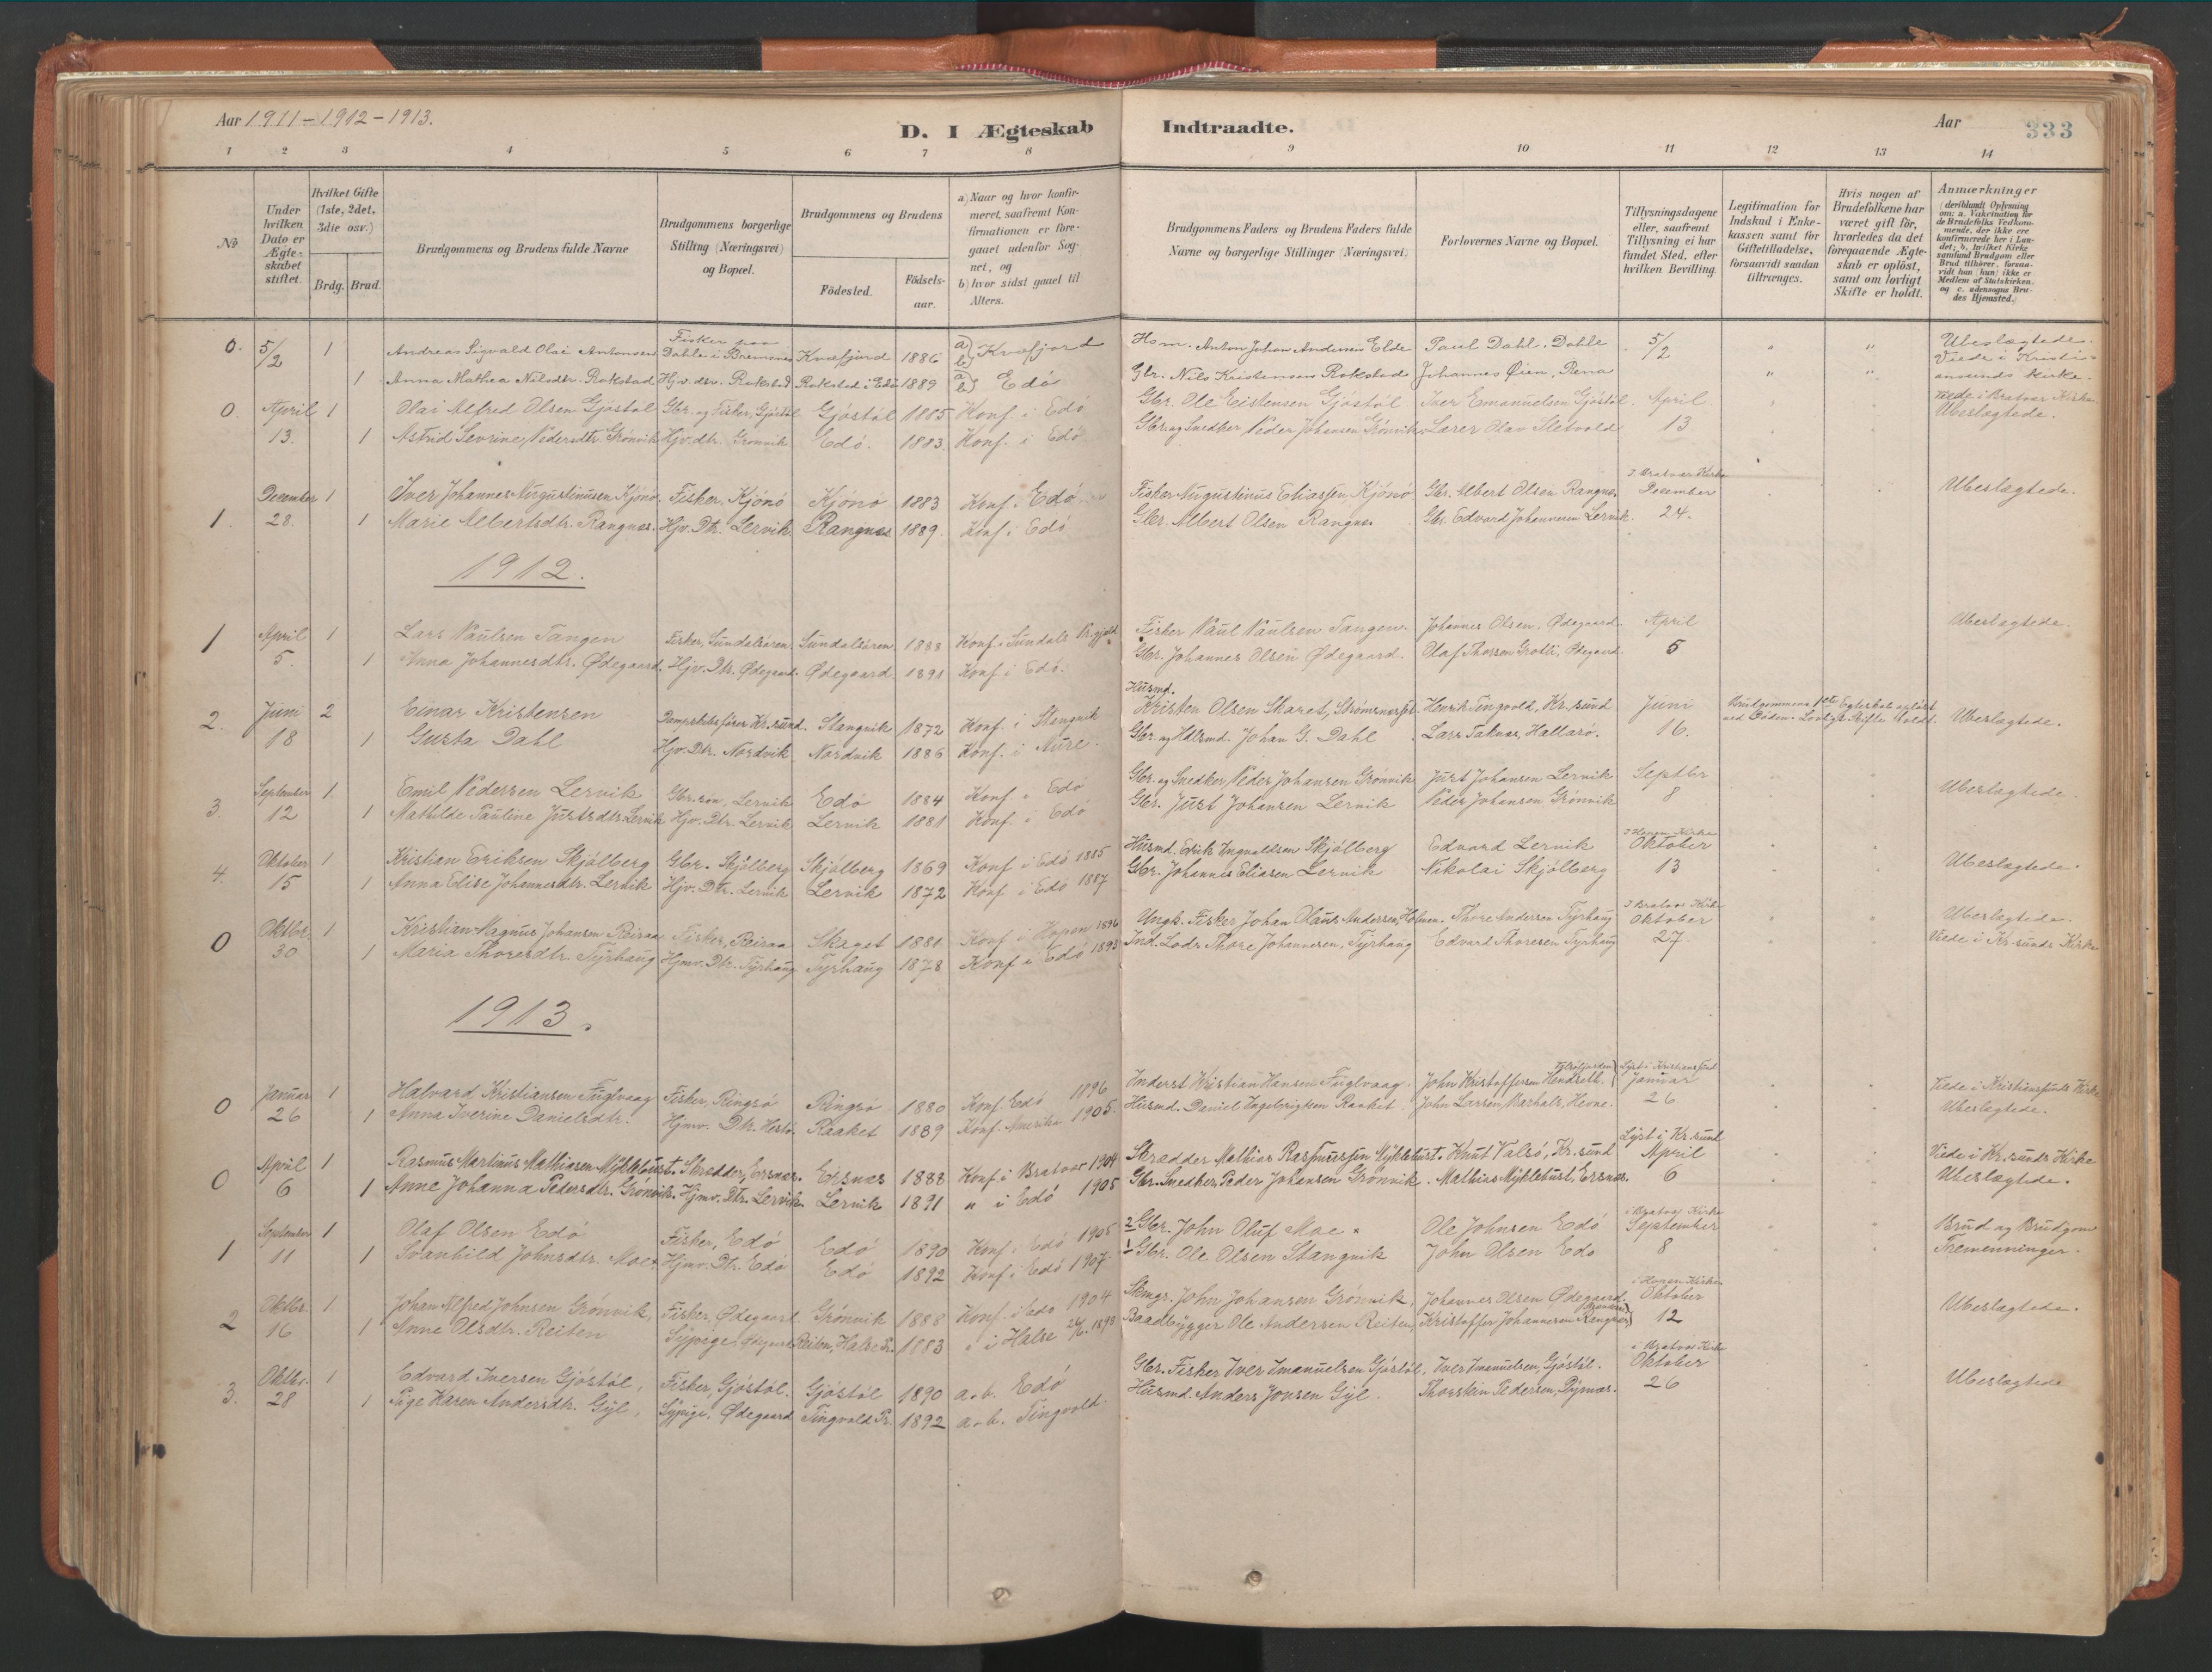 Aar 1911-1912-1913.
D. I Ægteskab Indtraadte.
Aar
333
1 2 3 4 5 6 7 8 9 10 11 12 13 14
No
Under hvilken Dato er Ægteskabet stiftet.
Hvilket Gifte (1ste, 2det, 3die osv.)
Brdg. Brud.
Brudgommens og Brudens fulde Navne
Brudgommens borgerlige Stilling (Næringsvei) og Bopæl.
Brudgommens og Brudens
Födested. Födsels-aar.
a) Naar og hvor konfirmeret, saafremt Konfirmationen er foregaaet udenfor Sognet, og
b) hvor sidst gaaet til Alters.
Brudgommens Faders og Brudens Faders fulde Navne og borgerlige Stillinger (Næringsvei)
Forlovernes Navne og Bopæl.
Tillysningsdagene eller, saafremt Tillysning ei har fundet Sted, efter hvilken Bevilling.
Legitimation for Indskud i Enkekassen samt for Giftetilladelse, forsaavidt saadan tiltrænges.
Hvis nogen af Brudefolkene har været gift för, hvorledes da det foregaaende Ægteskab er oplöst, samt om lovligt Skifte er holdt.
Anmærkninger (deriblandt Oplysning om: a. Vakcination for de Brudefolks Vedkommende, der ikke ere konfirmerede her i Landet; b. hvilket Kirkesamfund Brudgom eller Brud tilhörer, forsaavidt han (hun) ikke er Medlem af Statskirken, og c. udensogns Brudes Hjemsted.)
0. 5/2 1 Andreas Sigvald Olai Antonsen Fisker paa Dahle i Bremsnes Kvæfjord 1886 a) b) Kvæfjord Hsm. Anton Johan Andersen Elde Paul Dahl. Dahle 5/2 " " Ubeslægtede. Viede i Kristiansunds Kirke.
1 Anna Mathea Nilsdtr. Rokstad Hjv. dtr. Rokstad Rokstad i Edö 1889 a) b) Edö Gbr. Nils Kristensen Rokstad Johannes Øien, Rena " "
0. April 1 Olai Alfred Olsen Gjöstöl Gbr. og Fisker, Gjöstöl Gjöstöl 1885 Konf. i Edö Gbr. Ole Eistensen Gjöstöl Iver Emanuelsen Gjöstöl. April Viede i Bratvær Kirke.
13. 1 Astrid Sevrine Pedersdtr Grönvik Hjv. dtr. Grönvik Edö. 1883. Konf. i Edö Gbr. og Snedker Peder Johansen Grönvik. Lærer Olav Sletvold 13 Ubeslægtede.
December 1 Iver Johannes Augustinusen Kjönö. Fisker, Kjönö Kjönö 1883 Konf. i Edö Fisker Augustinus Eliassen Kjönö Gbr. Albert Olsen Rangnes I Bratvær Kirke December Ubeslægtede.
1. 28. 1 Marie Albertsdtr. Rangnes. Hjv. Dtr. Lervik. Rangnes 1889. Konf. i Edö Gbr. Albert Olsen Rangnes Gbr. Edvard Johannesen Lervik. 24.
1912.
1 April 1 Lars Paulsen Tangen Fisker, Sundalsören. Sundalsören 1888 Konf. i Sundals Pr.gjeld Fisker Paul Paulsen Tangen. Johannes Olsen, Ødegaard. April Ubeslægtede.
5. 1 Anna Johannesdtr. Ødegaard. Hjv. Dtr. Ødegaard. Ødegaard 1891 Konf i Edö. Gbr. Johannes Olsen Ødegaard. Olaf Thorsen Grotli, Ødegaard. 5
2. Juni 2 Einar Kristensen Dampskibsförer Kr.sund. Stangvik 1872 Konf. i Stangvik Husmd. Kristen Olsen Skaret, Henrik Tingvold, Kr.sund Juni Brudgommens 1ste Egteskab oplöst ved Döden. Lovligt Skifte holdt. Ubeslægtede.
18 1 Gusta Dahl Hjv. Dtr. Nordvik Nordvik 1886 Konf. i Aure. Gbr og Hdlsmd. Johan G. Dahl Lars Taknes, Hallarö. 16.
3. September 1. Emil Pedersen Lervik Gbr.søn, Lervik Edö 1884 Konf. i Edö Gbr. og Snedker Peder Johansen Grönvik Just Johansen Lervik Septbr Ubeslægtede.
12 1 Mathilde Pauline Justsdtr. Lervik Hjv. Dtr. Lervik Lervik 1881 Konf. i Edö Gbr. Just Johansen Lervik Peder Johansen Grönvik 8
4. Oktober 1 Kristian Eriksen Skjölberg Gbr. Skjölberg Skjölberg 1869 Konf i Edö 1885 Husmd. Erik Ingvaldsen Skjölberg Edvard Lervik I Hopen Kirke Oktober Ubeslægtede.
15 1 Anna Elise Johannesdtr. Lervik Hjv. Dtr. Lervik Lervik 1872 Konf i Edö 1887 Gbr. Johannes Eliasen Lervik Nikolai Skjölberg 13
0 Oktbr. 1 Kristian Magnus Johansen Reiraa Fisker, Reiraa Skaget 1881 Konf i Hopen 1896 Ungk. Fisker Johan Olaus Andersen, Holmen. Thore Andersen Tyrhaug I Bratvær Kirke Oktober Ubeslægtede.
30 1 Maria Thoresdtr. Tyrhaug Hjmv. Dtr. Tyrhaug Tyrhaug 1878 Konf i Edö 1893 Ind. Lods Thore Johannesen, Tyrhaug Edvard Thoresen Tyrhaug 27 Viede i Kr.sunds Kirke
1913.
0 Januar 1 Halvard Kristiansen Fuglvaag Fisker, Ringsö Ringsö 1880 Konf Edö 1896 Inderst Kristian Hansen Fuglvaag. John Kristoffersen Hendseth. Lyst i Kristianssund Januar Viede i Kristianssunds Kirke
26 1 Anna Iverine Danielsdtr. Hjmv. Dtr. Raaket 1889 Konf. Amerika 1905. Husmd. Daniel Ingebrigtsen Raaket John Larsen, Hevne. 26 Ubeslægtede.
0 April 1 Rasmus Martinus Mathiasen Myklebust. Skredder, Ersnes. Ersnes 1888 Konf i Bratvær 1904 Skredder Mathias Rasmussen Myklebust. Knut Valsö, Kr.sund Lyst i Kr.sund April Viede i Kr.sunds Kirke
6 1 Anne Johanna Pedersdtr. Grönvik. Hjmv. Dtr. Lervik. Lervik 1891 " i Edö 1905 Gbr. Snedker Peder Johansen Grönvik. Mathias Myklebust, Ersnes. 6 Ubeslægtede.
1 September 1 Olaf Olsen Edö Fisker, Edö Edö 1890 Konf i Edö 1905 2 Gbr. John Oluf Moe Ole Johnsen Edö i Bratvær Kirke September Brud og Brudgom
11 1 Svanhild Johnsdtr. Moe Hjmv. Dtr. Edö Edö 1892 Konf i Edö 1907 1 Gbr. Ole Olsen Stangvik John Olsen Edö 8 Tremenninger.
2 Oktbr. 1 Johan Alfred Johnsen Grönvik, Fisker, Ødegaard Grönvik 1888 Konf. i Edö 1904 Skmgr. John Johansen Grönvik, Johannes Olsen Ødegaard. i Hopen Kirke Oktober Ubeslægtede.
16 1 Anne Olsdtr. Reiten Sypige, Reiten, Halse Pr. 1883 " i Halse 1898 Baadbygger Ole Andersen Reiten, Kristoffer Johannesen Rangnes 12
3. Oktbr. 1 Edvard Iversen Gjöstöl, Fisker, Gjöstöl. Gjöstöl 1890 a. b. Edö Gbr. Fisker Iver Imanuelsen Gjöstöl. Iver Imanuelsen, Gjöstöl. i Bratvær Kirke Oktober Ubeslægtede
28 1 Pige Karen Andersdtr. Gyl, Sypige, Ødegaard Tingvold Pr. 1892 a. b. Tingvold. Husmd. Anders Jonsen Gyl. Thorstein Pedersen, Dyrnes. 26